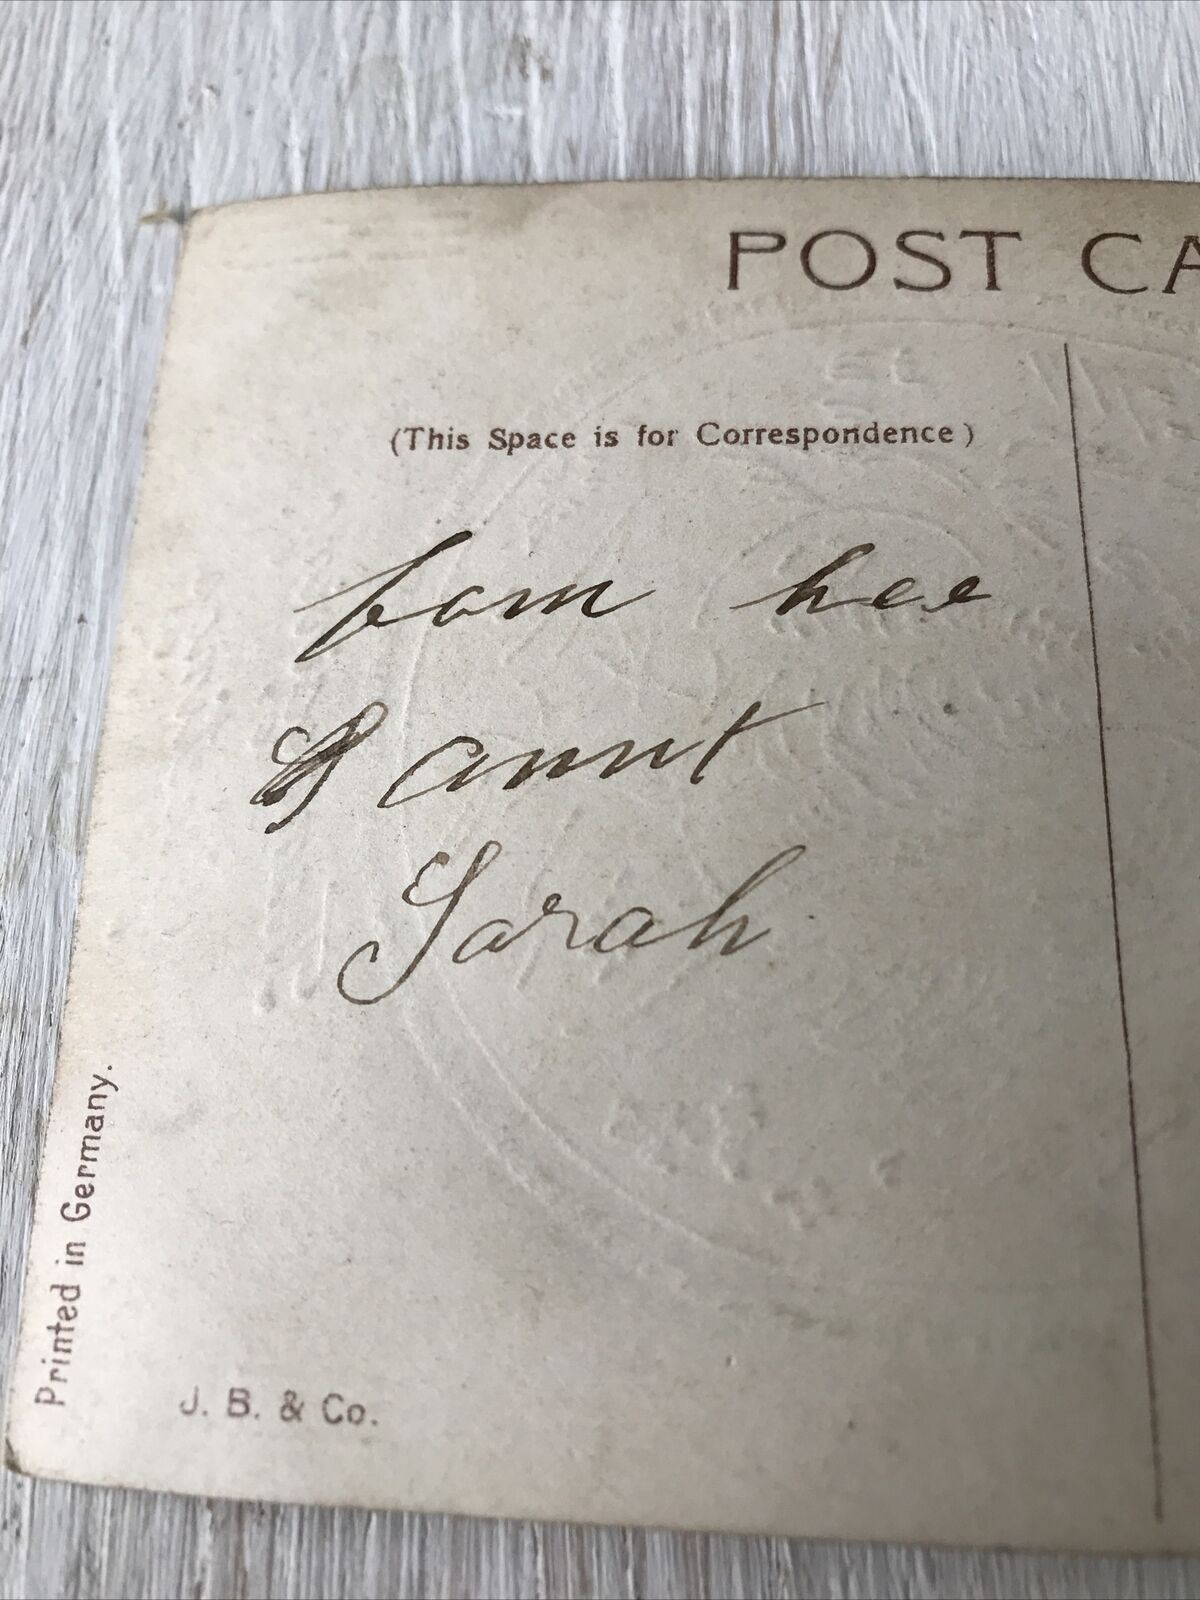 POST CA
(This Space is for Correspondence)
fom hee
annt
Sarah
Printed in Germany.
J. B. & Co.